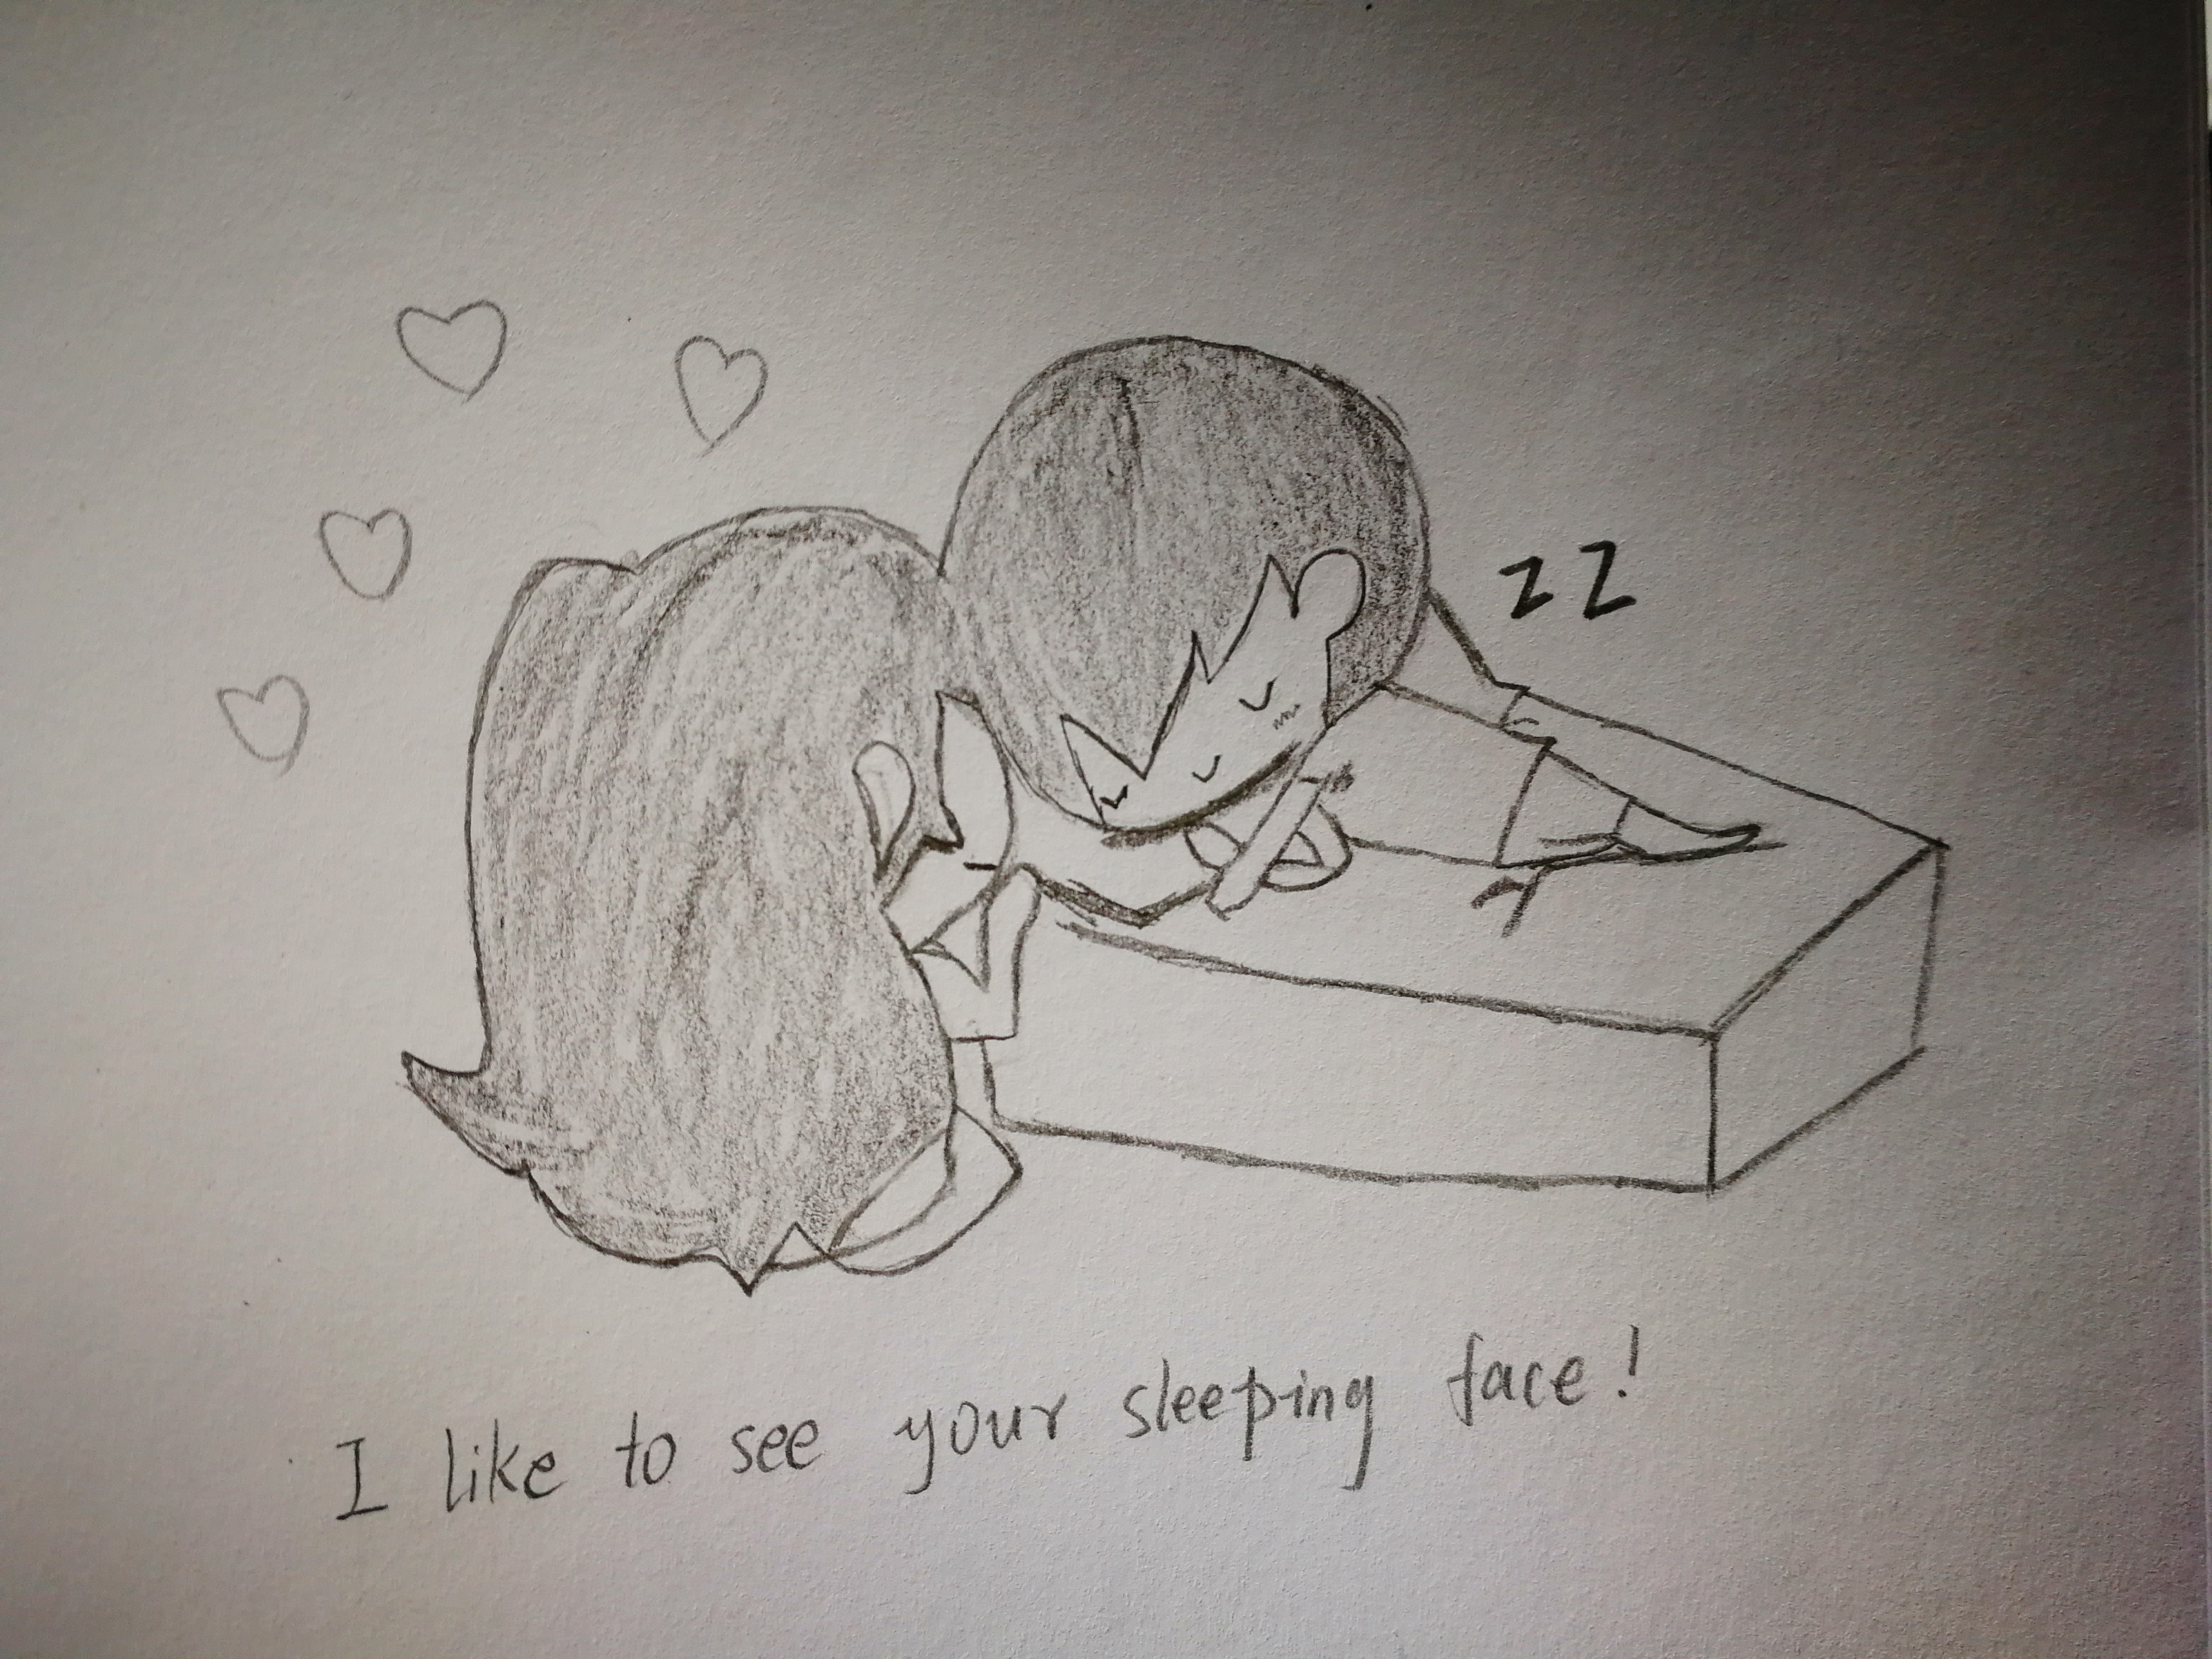 ZZ
I like to see your sleeping face!